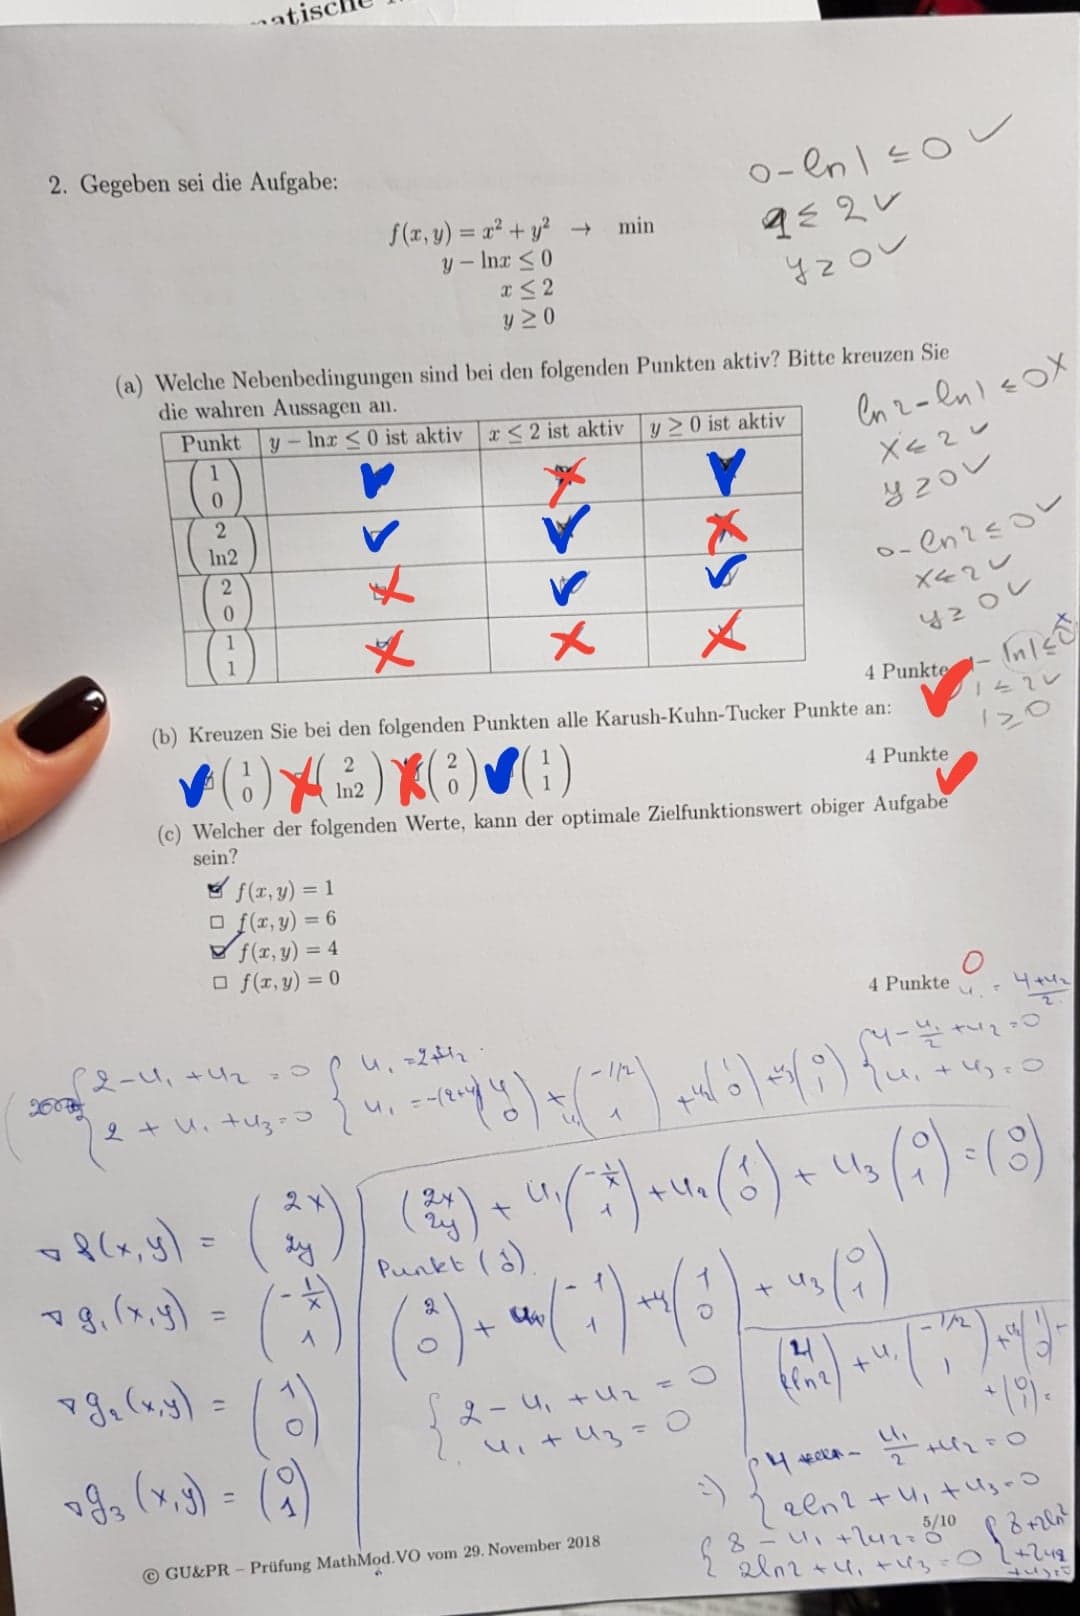 atische
2. Gegeben sei die Aufgabe:
f(x, y) = x² + y² → min
y − lnx ≤ 0
x ≤ 2
y ≥ 0
0 - ln 1 ≤ 0 ✓
1 ≤ 2 ✓
y ≥ 0 ✓
(a) Welche Nebenbedingungen sind bei den folgenden Punkten aktiv? Bitte kreuzen Sie
die wahren Aussagen an.
Punkt y − lnx ≤ 0 ist aktiv x ≤ 2 ist aktiv y ≥ 0 ist aktiv
(1 0) ✓ ✗ ✓
(2 ln2) ✓ ✓ ✗
(2 0) ✗ ✓ ✓
(1 1) ✗ ✗ ✗
ln 2 - ln 1 ≤ 0 x
x ≤ 2 ✓
y ≥ 0 ✓
0 - ln 2 ≤ 0 ✓
x ≤ 2 ✓
y ≥ 0 ✓
1 - ln 1 ≤ 0 x
1 ≤ 2 ✓
1 ≥ 0
4 Punkte ✓
(b) Kreuzen Sie bei den folgenden Punkten alle Karush-Kuhn-Tucker Punkte an:
✓ (1 0) ✗ (2 ln2) ✗ (2 0) ✓ (1 1)
4 Punkte ✓
(c) Welcher der folgenden Werte, kann der optimale Zielfunktionswert obiger Aufgabe
sein?
☑ f(x, y) = 1
☐ f(x, y) = 6
☑ f(x, y) = 4
☐ f(x, y) = 0
4 Punkte 0
2 - u₁ + u₂ = 0
2 + u₁ + u₃ = 0
u₁ = 2 + u₂
4 - u₁/2 + u₂ = 0
u₁ + u₃ = 0
∇f(x, y) = (2x 2y)
∇g₁(x, y) = (-1/x 1)
∇g₂(x, y) = (1 0)
∇g₃(x, y) = (0 1)
(2x 2y) + u₁(-1/x 1) + u₂(1 0) + u₃(0 1) = (0 0)
Punkt (1 0)
(2 0) + u₁(-1 1) + u₂(1 0) + u₃(0 1)
2 - u₁ + u₂ = 0
u₁ + u₃ = 0
(4 2ln2) + u₁(-1/2 1) + u₂(1 0)
+ (0 1) =
=> 4 - u₁/2 + u₂ = 0
2ln2 + u₁ + u₃ = 0
5/10
8 - u₁ + 2u₂ = 0
2ln2 + u₁ + u₃ = 0
© GU&PR – Prüfung MathMod.VO vom 29. November 2018